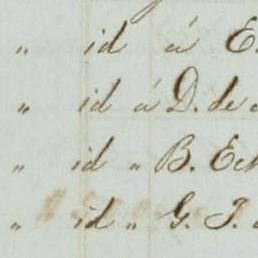 " id á E.
" id á D. de
" id " B. Ech
" id " G. P.